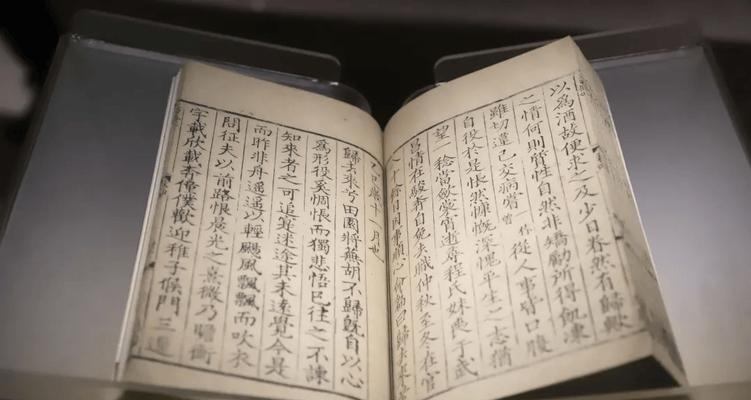 以為酒故便求之及少日眷然有歸歟
之情何則質性自然非矯勵所得飢凍
雖切違己交病嘗從人事皆口腹
自役於是悵然慷慨深愧平生之志猶
望一稔當斂裳宵逝尋程氏妹喪于武
昌情在駿奔自免去職仲秋至冬在官
八十餘日因事順心命篇曰歸去來兮
乙巳歲十一月也
歸去來兮田園將蕪胡不歸既自以心
為形役奚惆悵而獨悲悟已往之不諫
知來者之可追寔迷途其未遠覺今是
而昨非舟遙遙以輕颺風飄飄而吹衣
問征夫以前路恨晨光之熹微乃瞻衡
宇載欣載奔僮僕歡迎稚子候門三逕